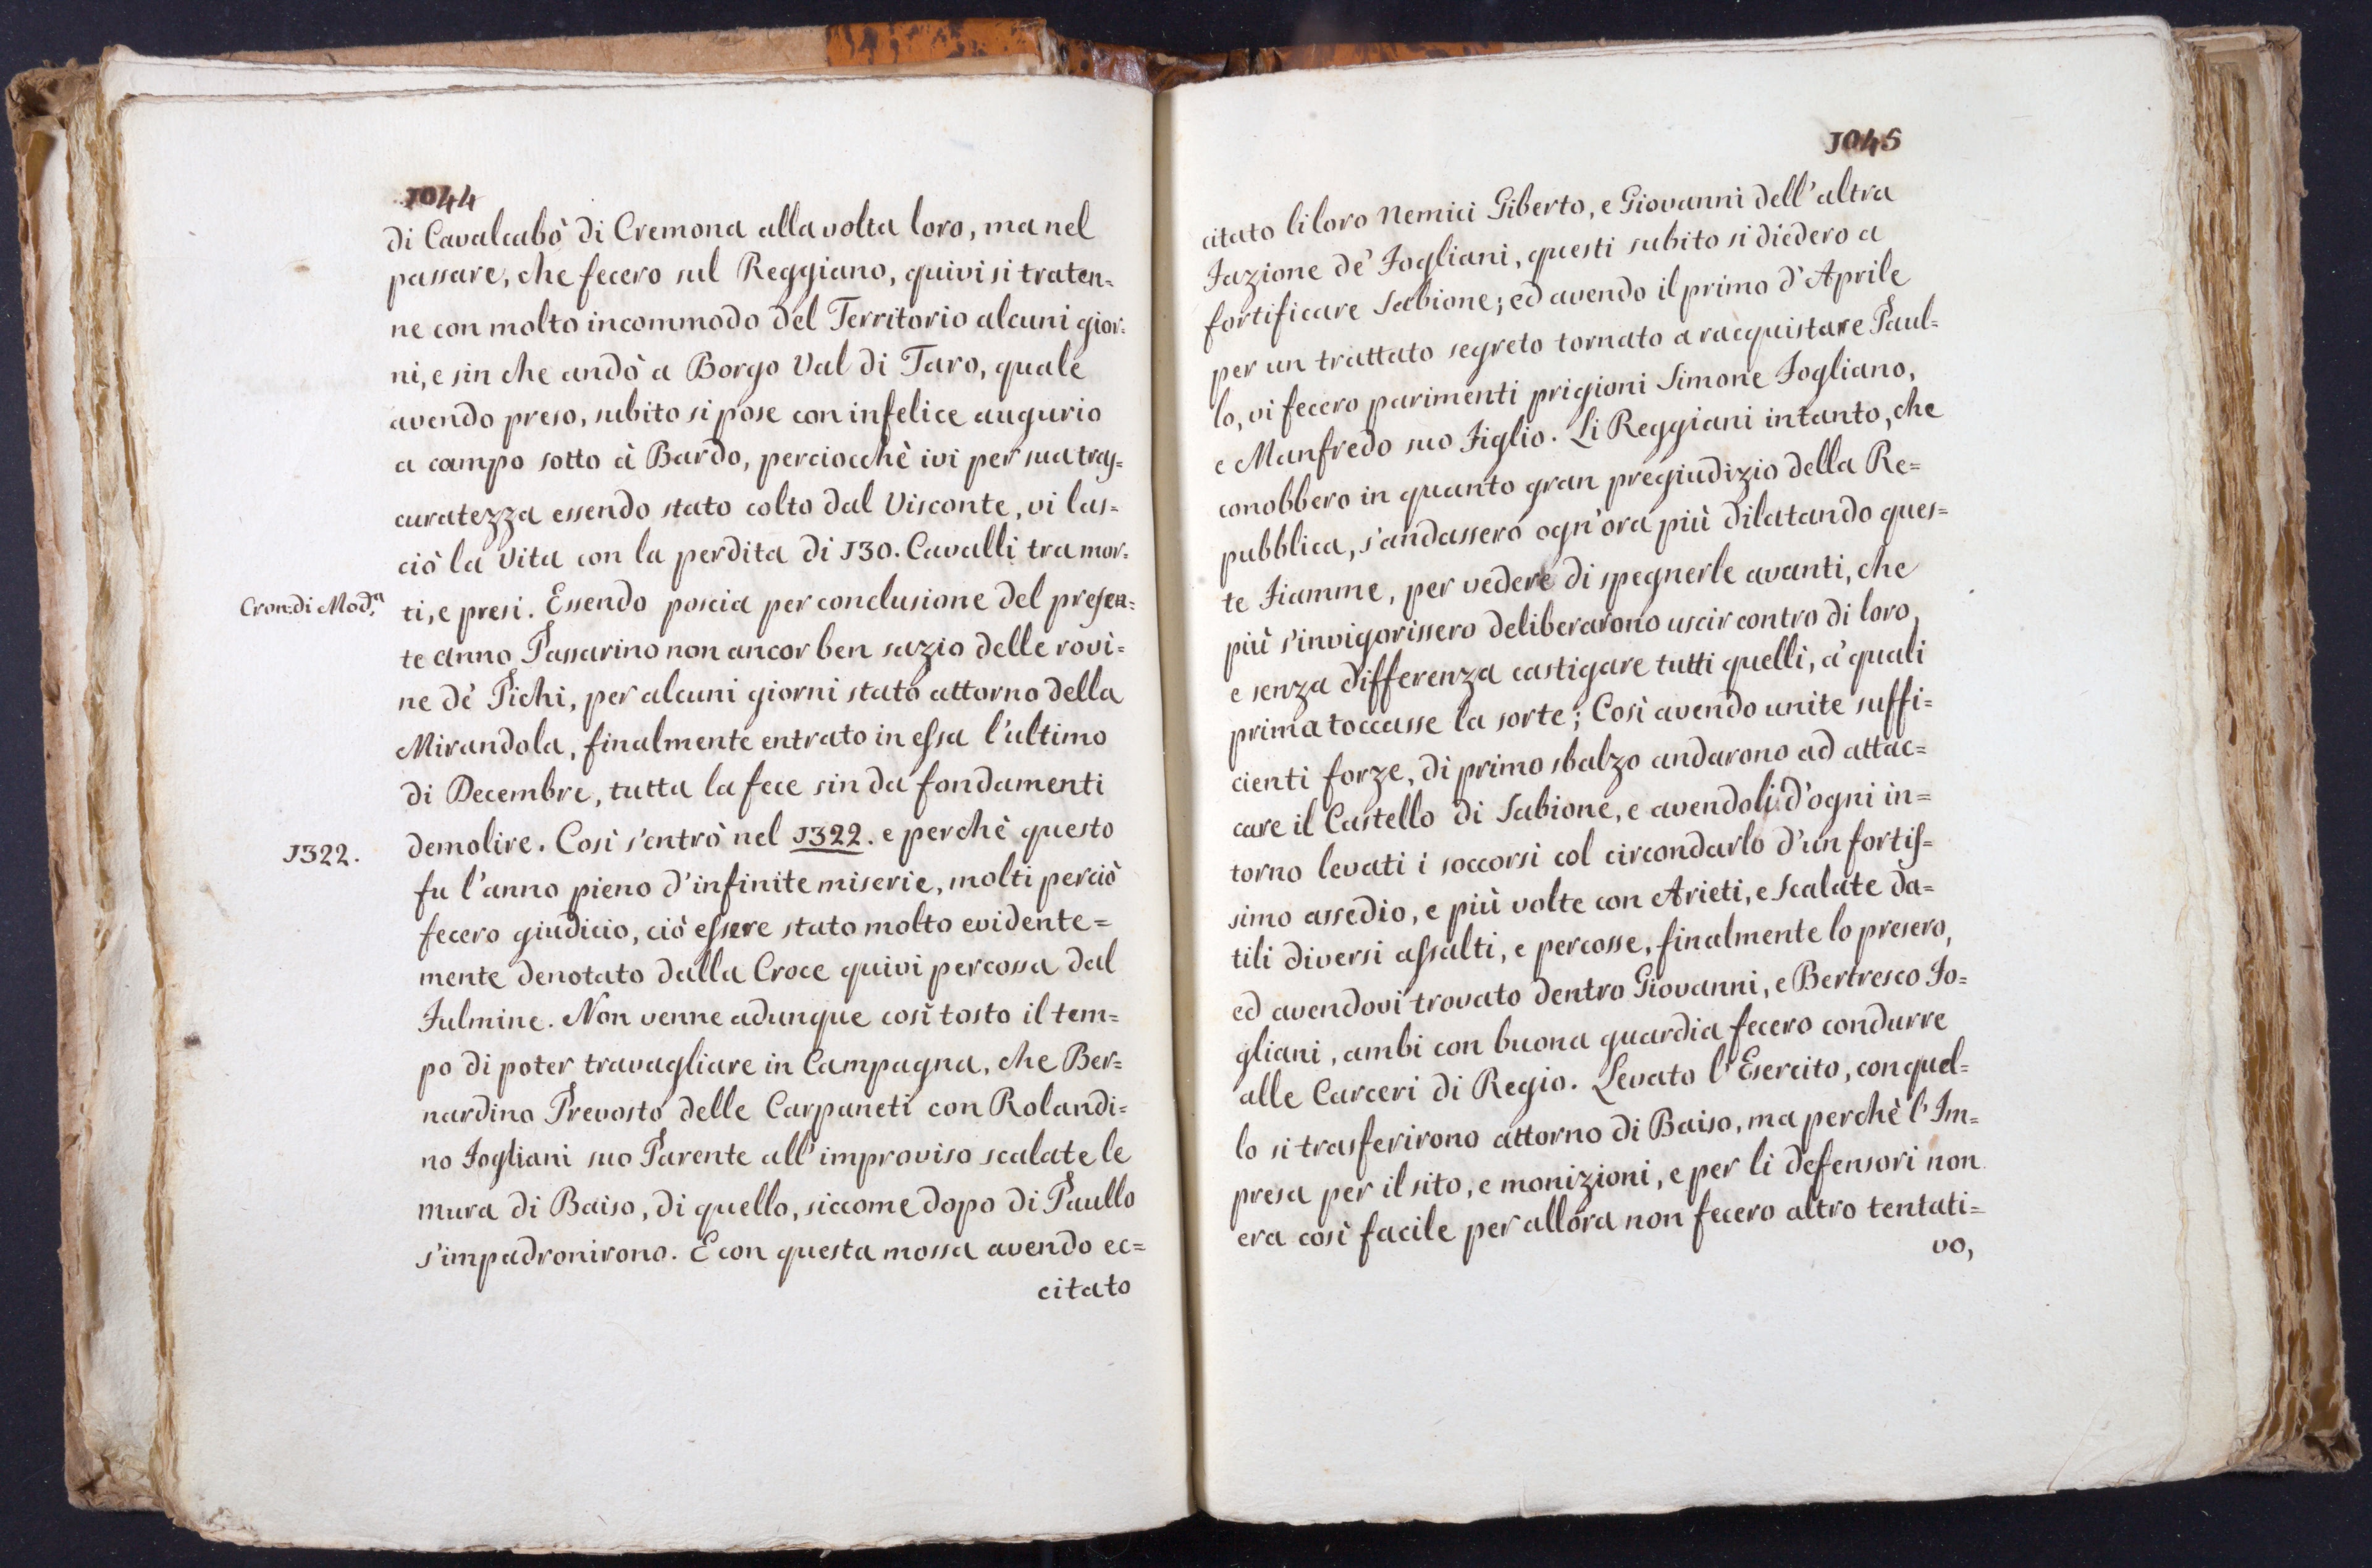 1044
di Cavalcabò di Cremona alla volta loro, ma nel
passare, che fecero sul Reggiano, quivi si traten=
ne con molto incommodo del Territorio alcuni gior=
ni, e sin che andò a Borgo Val di Taro, quale
avendo preso, subito si pose con infelice augurio
a campo sotto à Bardo, perciocchè ivi per sua tras=
curatezza essendo stato colto dal Visconte, vi las=
ciò la Vita con la perdita di 130. Cavalli tra mor=
Cron: di Mod.ª
ti, e presi. Essendo poscia per conclusione del presen=
te anno Passarino non ancor ben sazio delle rovi=
ne de' Pichi, per alcuni giorni stato attorno della
Mirandola, finalmente entrato in essa l'ultimo
di Decembre, tutta la fece sin da fondamenti
1322.
demolire. Così s'entrò nel 1322. e perchè questo
fu l'anno pieno d'infinite miserie, molti perciò
fecero giudicio, ciò essere stato molto evidente=
mente denotato dalla Croce quivi percossa dal
Fulmine. Non venne adunque così tosto il tem=
po di poter travagliare in Campagna, che Ber=
nardino Prevosto delle Carpaneti con Rolandi=
no Fogliani suo Parente all'improviso scalate le
mura di Baiso, di quello, siccome dopo di Paullo
s'impadronirono. E con questa mossa avendo ec=
citato
1045
citato li loro Nemici Giberto, e Giovanni dell'altra
Fazione de' Fogliani, questi subito si diedero a
fortificare Sabione; ed avendo il primo d'Aprile
per un trattato segreto tornato a racquistare Paul=
lo, vi fecero parimenti prigioni Simone Fogliano,
e Manfredo suo Figlio. Li Reggiani intanto, che
conobbero in quanto gran pregiudizio della Re=
pubblica, s'andassero ogn'ora più dilatando ques=
te Fiamme, per vedere di spegnerle avanti, che
più s'invigorissero deliberarono uscir contro di loro,
e senza differenza castigare tutti quelli, a' quali
prima toccasse la sorte; Così avendo unite suffi=
cienti forze, di primo sbalzo andarono ad attac=
care il Castello di Sabione, e avendoli d'ogni in=
torno levati i soccorsi col circondarlo d'un fortis=
simo assedio, e più volte con Arieti, e Scalate da=
tili diversi assalti, e percosse, finalmente lo presero,
ed avendovi trovato dentro Giovanni, e Bertresco Fo=
gliani, ambi con buona guardia fecero condurre
alle Carceri di Regio. Levato l'Esercito, con quel=
lo si trasferirono attorno di Baiso, ma perchè l'Im=
presa per il sito, e monizioni, e per li defensori non
era così facile per allora non fecero altro tentati=
vo,